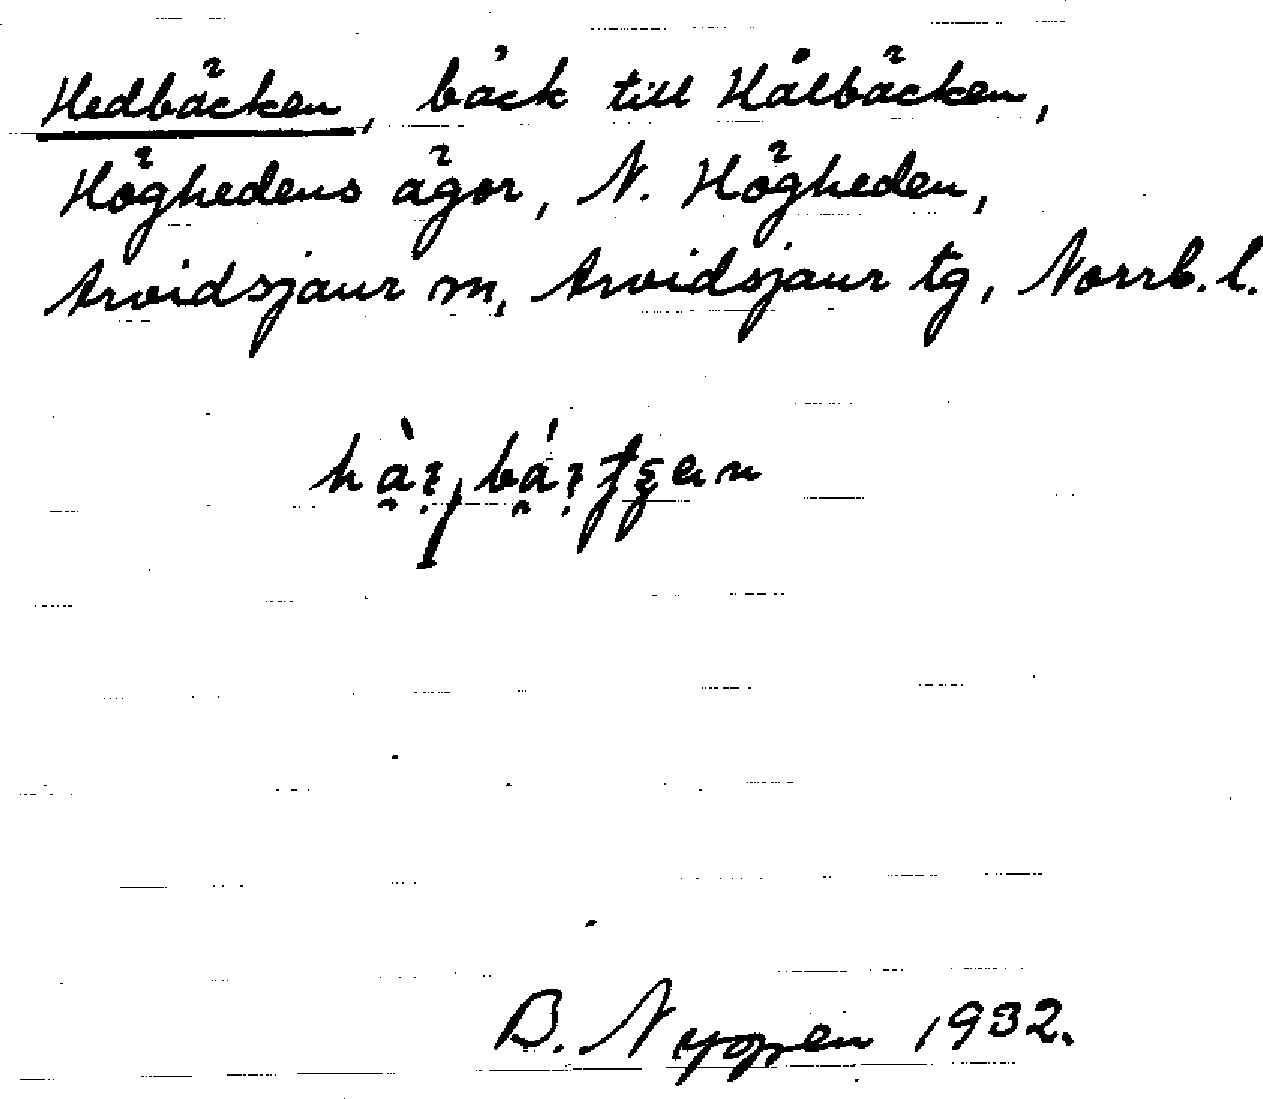 Hedbäcken, bäck till Hålbäcken,
Höghedens ägor, N. Högheden,
Arvidsjaur m, Arvidsjaur tg, Norrb. l.
B. Nyppen 1932.